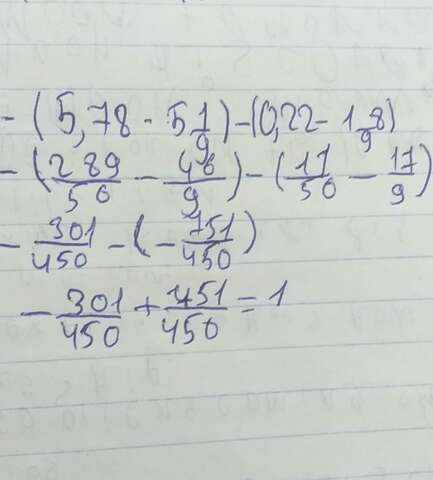 - (5,78 - 5 1/9) - (0,22 - 1 8/9)
- (289/50 - 46/9) - (11/50 - 17/9)
- 301/450 - (- 751/450)
- 301/450 + 751/450 = 1